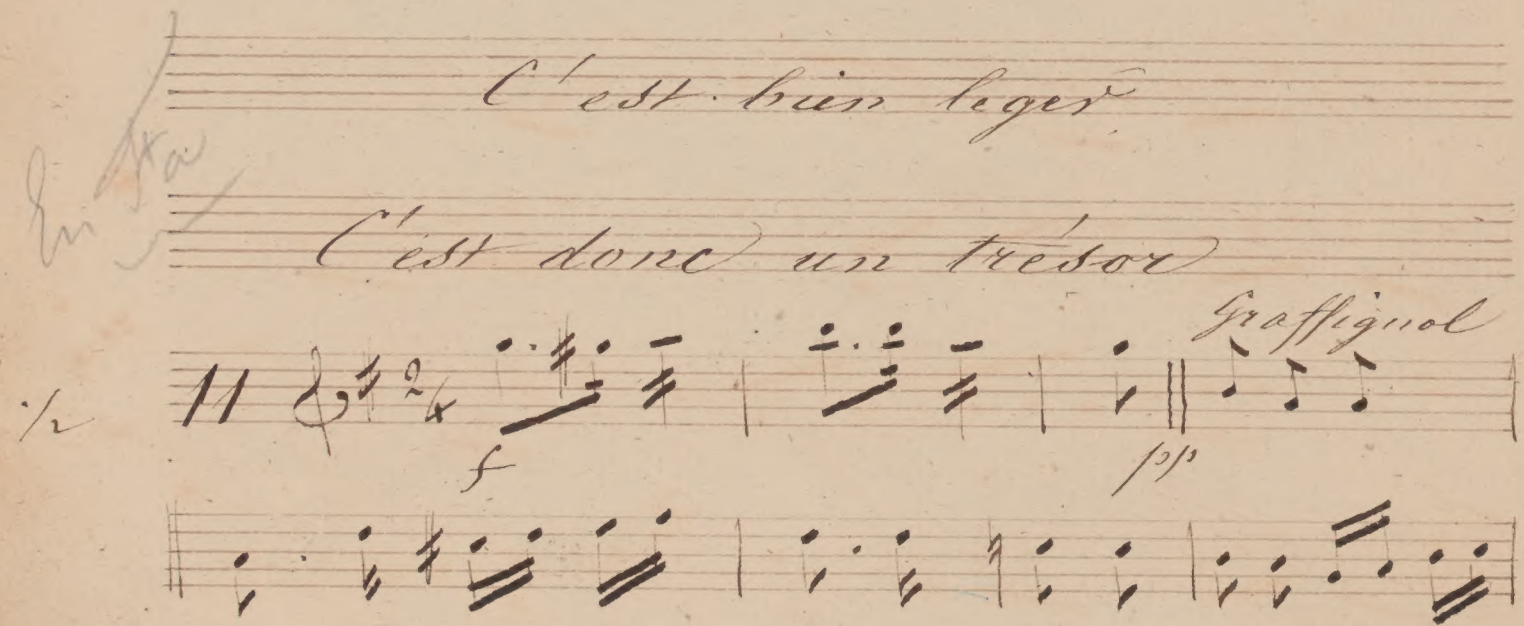 C'est bien leger
En fa
C'est donc un trésor
Graffignol
1/2 11 2/4
f pp